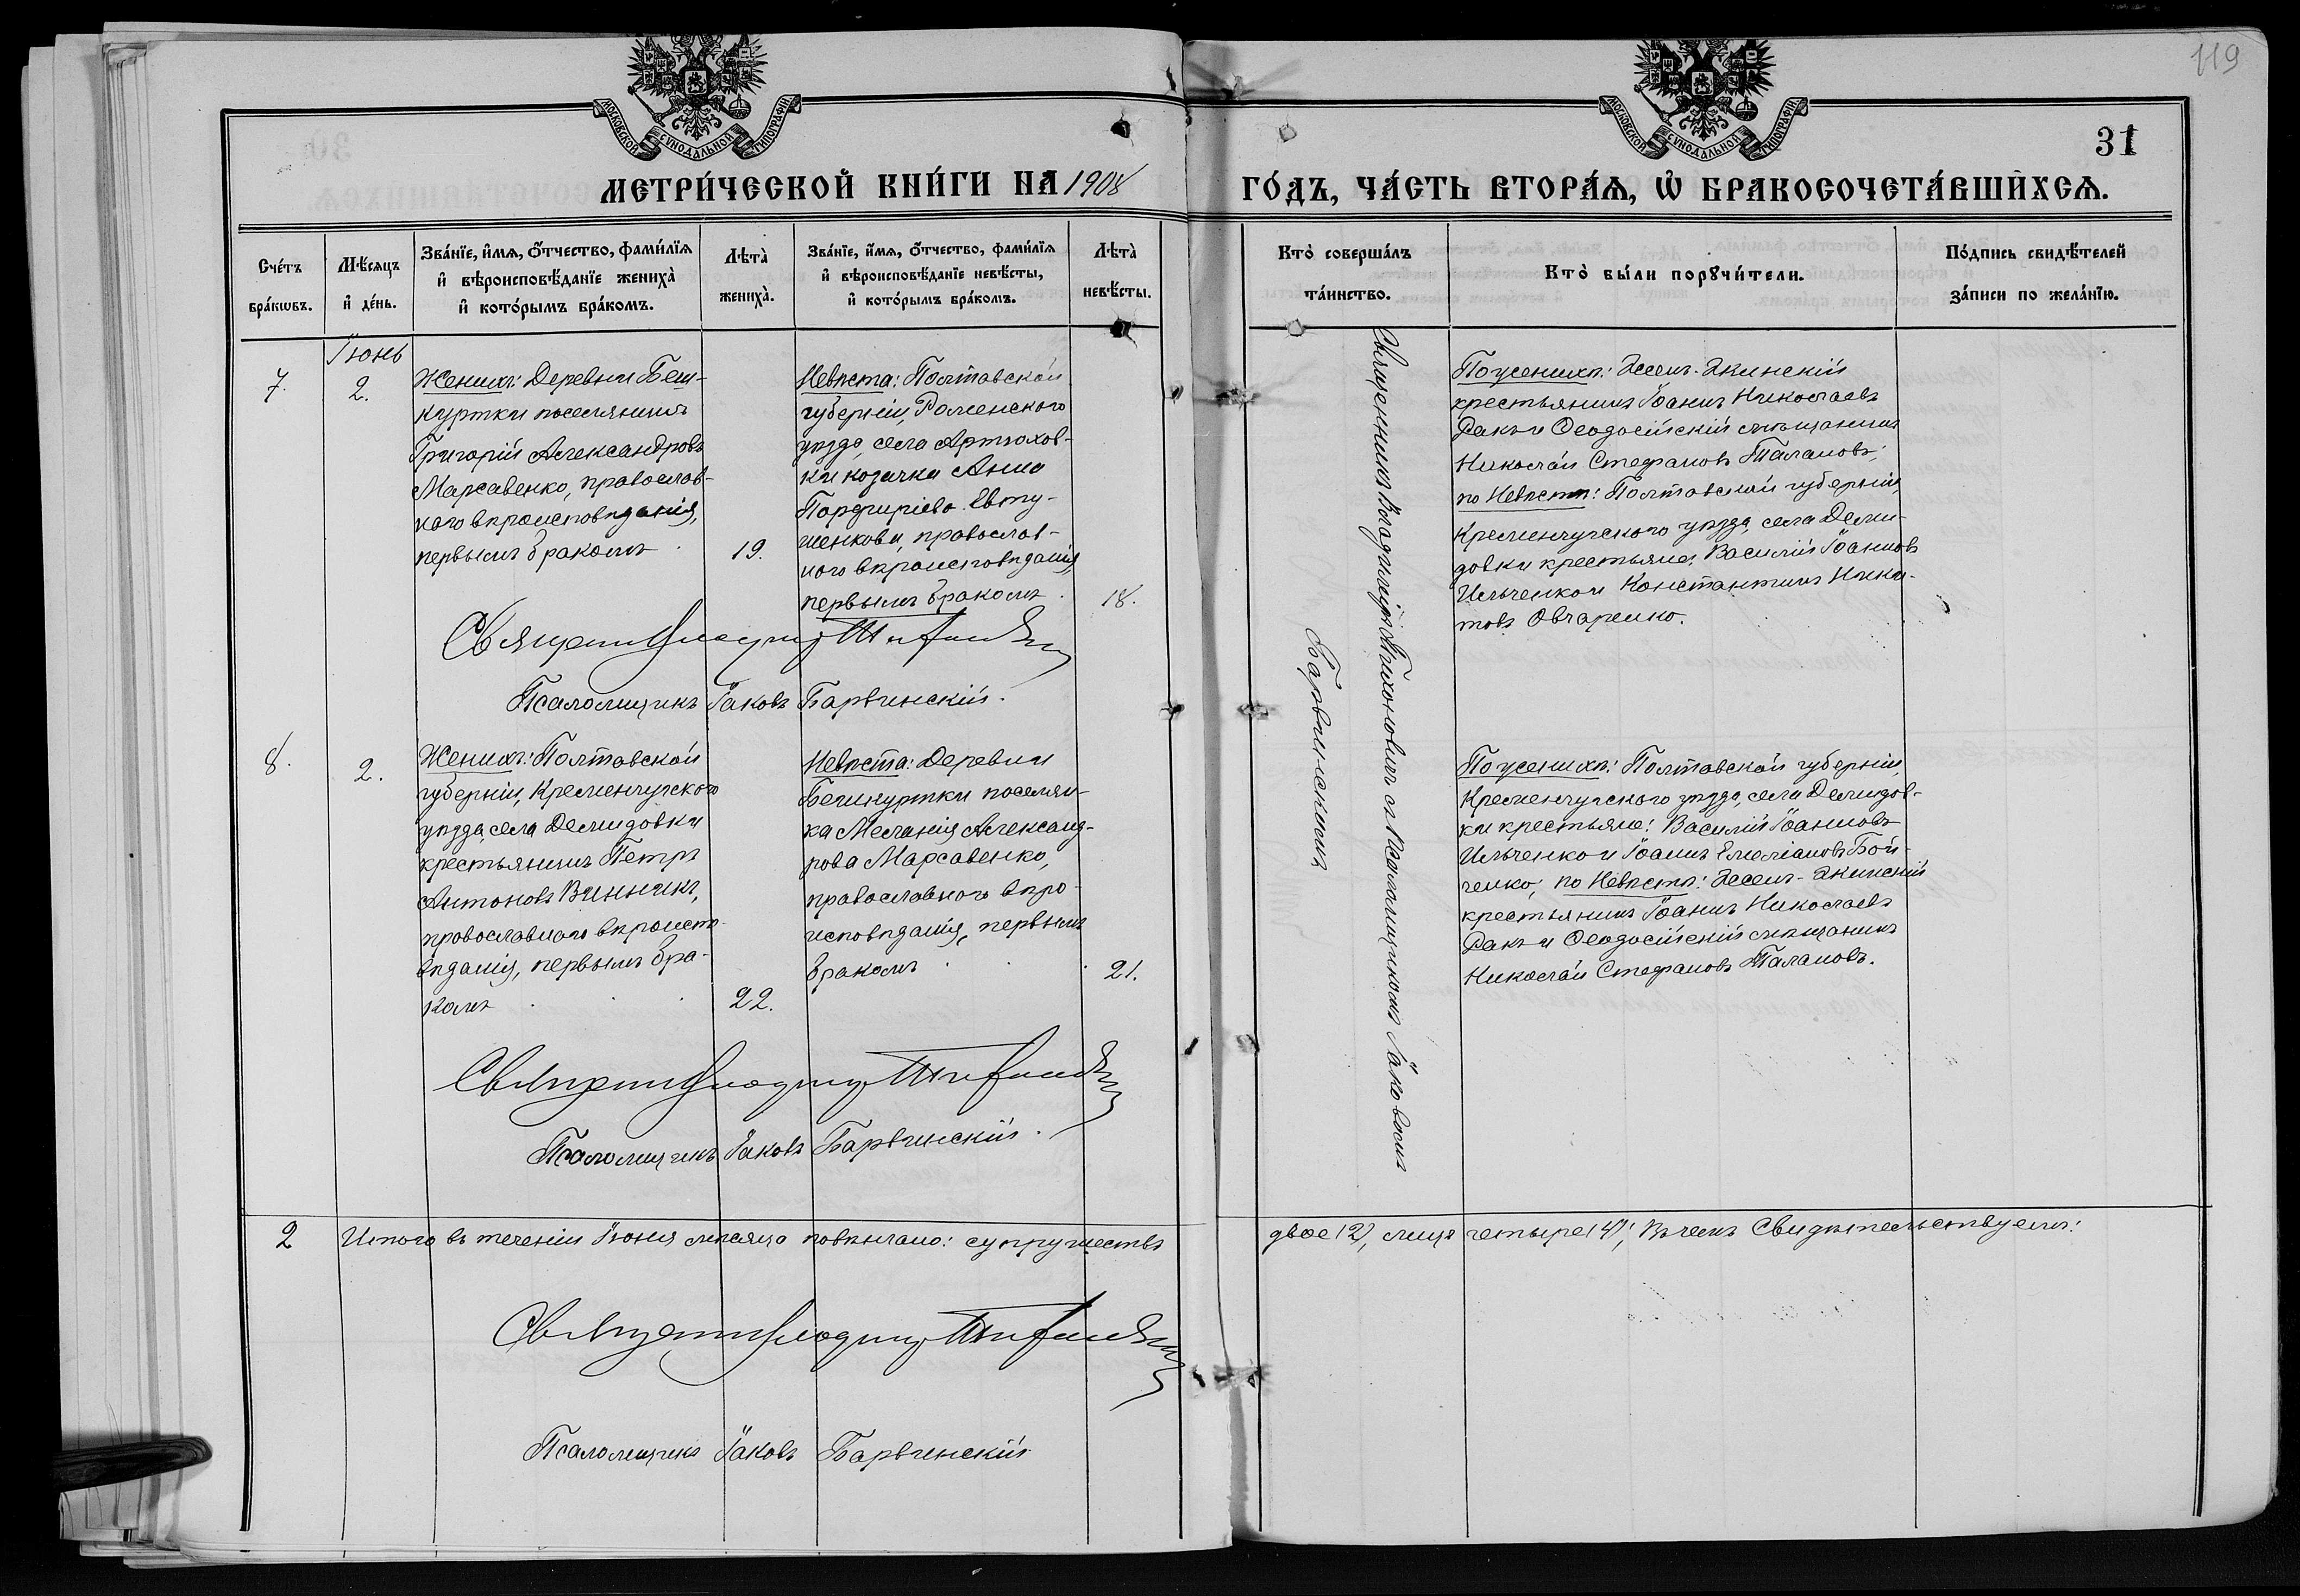 119
31
МОСКОВСКОЙ СѴНОДАЛЬНОЙ ТИПОГРАФІИ
МОСКОВСКОЙ СѴНОДАЛЬНОЙ ТИПОГРАФІИ
МЕТРИ́ЧЕСКОЙ КНИ́ГИ НА 1908 ГО́ДЪ, ЧА́СТЬ ВТОРА́Ѧ, Ѡ҆ БРАКОСОЧЕТА́ВШИХСѦ.
Сче́тъ
бра́кѡвъ.
Мѣ́сѧцъ
и҆ де́нь.
Зва́нїе, и҆́мѧ, ѻ҆́тчество, фами́лїѧ
и҆ вѣроисповѣ́данїе жениха̀
и҆ кото́рымъ бра́комъ.
Лѣта̀
жениха̀.
Зва́нїе, и҆́мѧ, ѻ҆́тчество, фами́лїѧ
и҆ вѣроисповѣ́данїе невѣ́сты,
и҆ кото́рымъ бра́комъ.
Лѣта̀
невѣ́сты.
Кто̀ соверша́лъ
та́инство.
Кто̀ бы́ли порꙋчи́тели.
По́дпись свидѣ́телей
за́писи по жела́нїю.
7.
Іюнь
2.
Женихъ: Деревни Беш-
куртки поселянинъ
Григорій Александровъ
Марсавенко, православ-
наго вѣроисповѣданія,
первымъ бракомъ
19.
Невѣста: Полтавской
губерніи, Роменскаго
уѣзда, села Артюхов-
ки козачка Анна
Порфиріева Евту-
шенкова, православ-
наго вѣроисповѣданія
первымъ бракомъ
18.
Священникъ Владиміръ Тихоновичъ съ Псаломщикомъ Іаковомъ
Барвинскимъ
По женихѣ: Эсенъ-Экинскій
крестьянинъ Іоаннъ Николаевъ
Ракъ и Ѳеодосійскій мѣщанинъ
Николай Стефановъ Талановъ;
по Невѣстѣ: Полтавской губерніи,
Кременчугскаго уѣзда, села Деми-
довки крестьяне: Василій Іоанновъ
Ильченко и Константинъ Ники-
товъ Овчаренко.
Священникъ Владиміръ
Псаломщикъ Іаковъ Барвинскій.
8.
2.
Женихъ: Полтавской
губерніи, Кременчугскаго
уѣзда, села Демидовки
крестьянинъ Петръ
Антоновъ Винникъ,
православнаго вѣроиспо-
вѣданія, первымъ бра-
комъ
22.
Невѣста: Деревни
Бешкуртки поселян-
ка Меланія Александ-
рова Марсавенко,
православнаго вѣро-
исповѣданія, первымъ
бракомъ
21.
По женихѣ: Полтавской губерніи,
Кременчугскаго уѣзда, села Демидов-
ки крестьяне: Василій Іоанновъ
Ильченко и Іоаннъ Емеліановъ Бой-
ченко; по Невѣстѣ: Эсенъ-Экинскій
крестьянинъ Іоаннъ Николаевъ
Ракъ и Ѳеодосійскій мѣщанинъ
Николай Стефановъ Талановъ.
Священникъ Владиміръ
Псаломщикъ Іаковъ Барвинскій.
2 Итого въ теченіи Іюня мѣсяца повѣнчано: супружествъ двое (2), лицъ четыре (4); Въ чемъ Свидѣтельствуемъ:
Священникъ Владиміръ
Псаломщикъ Іаковъ Барвинскій